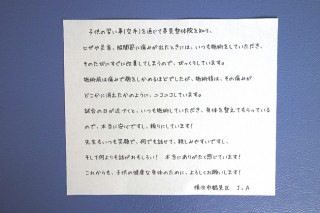 子供の習い事(空手)を通じて早見整体院を知り、
ヒザや足首、股関節に痛みが出たときには、いつも施術をしていただき、
そのたびにすぐに改善してしまうので、びっくりしています。
施術前は痛みで顔をしかめるほどでしたが、施術後は、その痛みが
どこかに消えたかのように、ニコニコしています。
試合の日が近づくと、いつも施術していただき、身体を整えてもらっている
ので、本当に安心ですし、頼りにしています!
先生もいつも笑顔で、何でも話せて、親しみやすいですし、
そして何よりも話がおもしろい! 本当にありがたく感じています!
これからも、子供の健康な身体のために、よろしくお願いします!
横浜市鶴見区 I.A